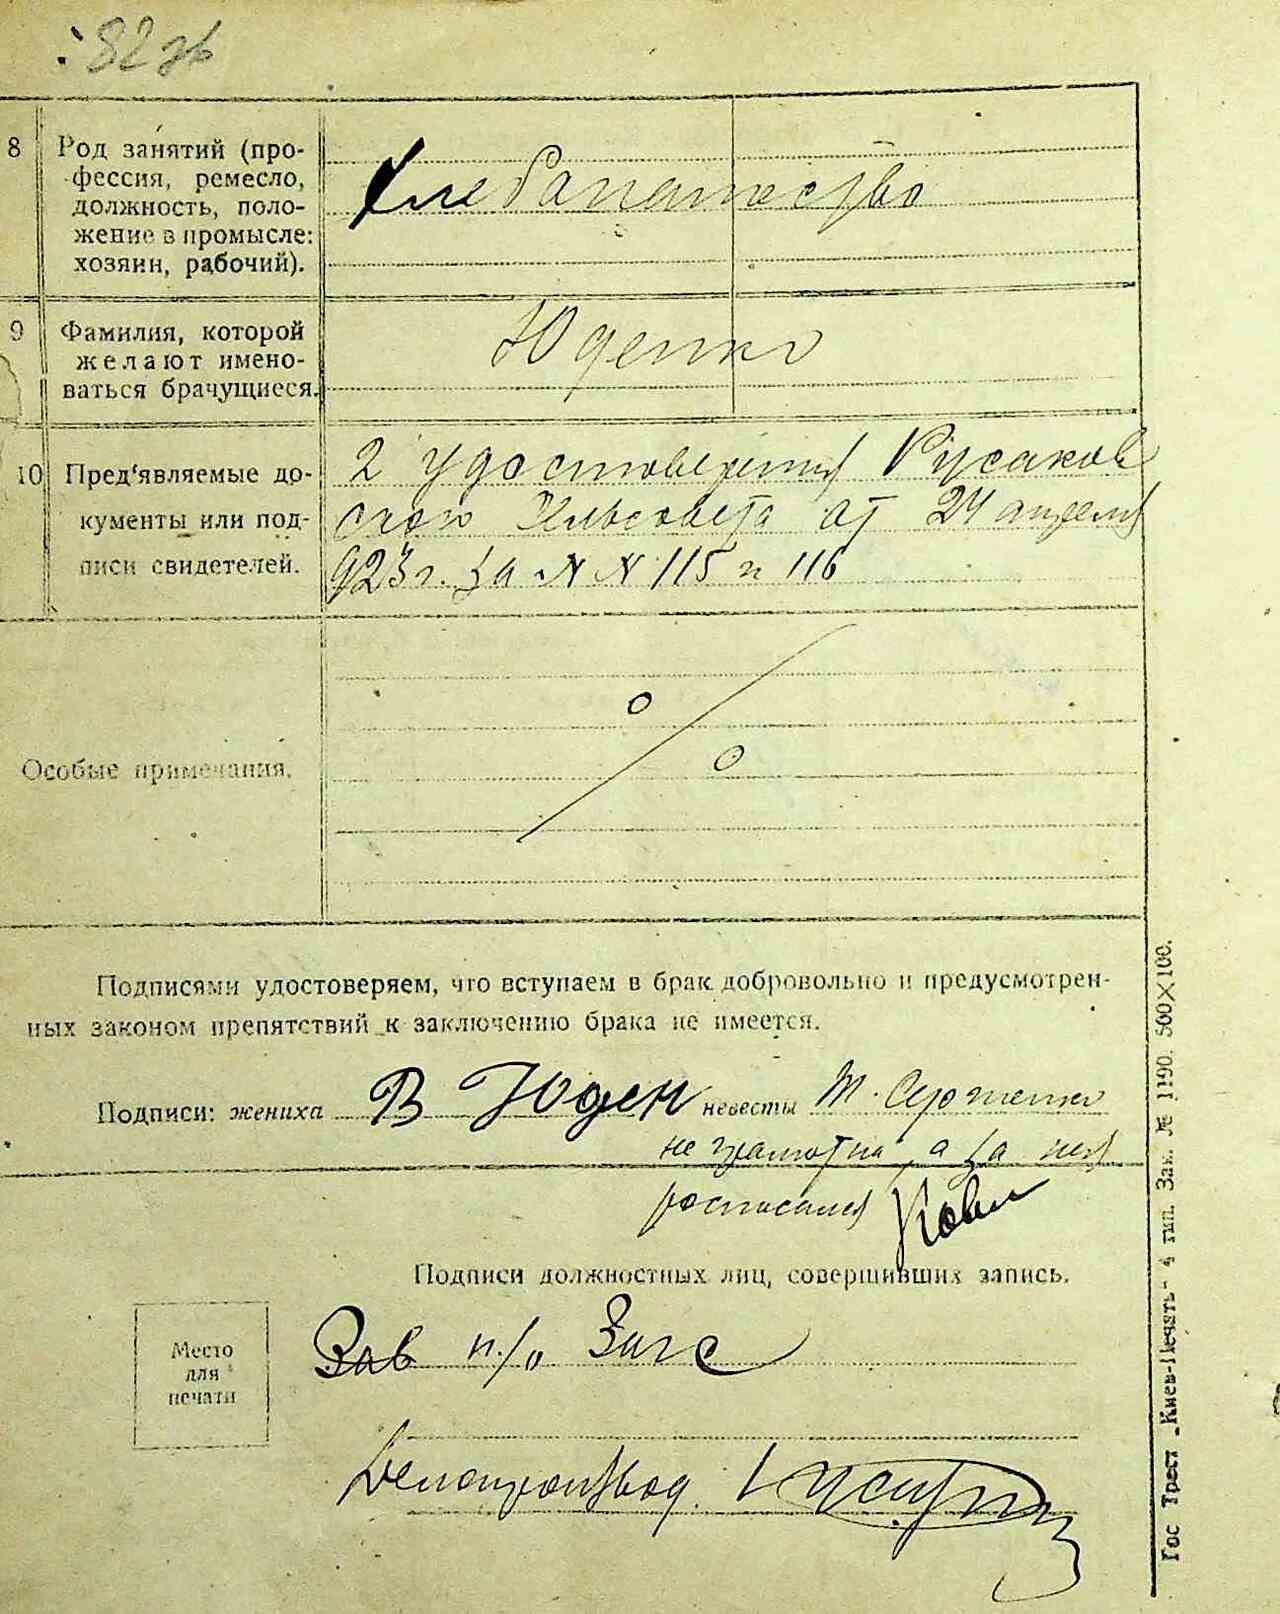 82 зв
8 Род занятий (про-
фессия, ремесло,
должность, поло-
жение в промысле:
хозяин, рабочий).
Хлебопашество
9 Фамилия, которой
желают имено-
ваться брачущиеся.
Юденко
10 Пред'являемые до-
кументы или под-
писи свидетелей.
2 удостоверения Русаков
ского сельсовета от 24 апреля
923 г. за № № 115 и 116
Особые примечания.
Подписями удостоверяем, что вступаем в брак добровольно и предусмотрен-
ных законом препятствий к заключению брака не имеется.
Подписи: жениха В Юден невесты
не грамотна, а за нея
росписался
Подписи должностных лиц, совершивших запись.
Место
для
печати
Зав п/о Загс
Делопроизвод.
Гос Трест „Киев-Печать" 4 тип. Зак. № 1190. 500×100.